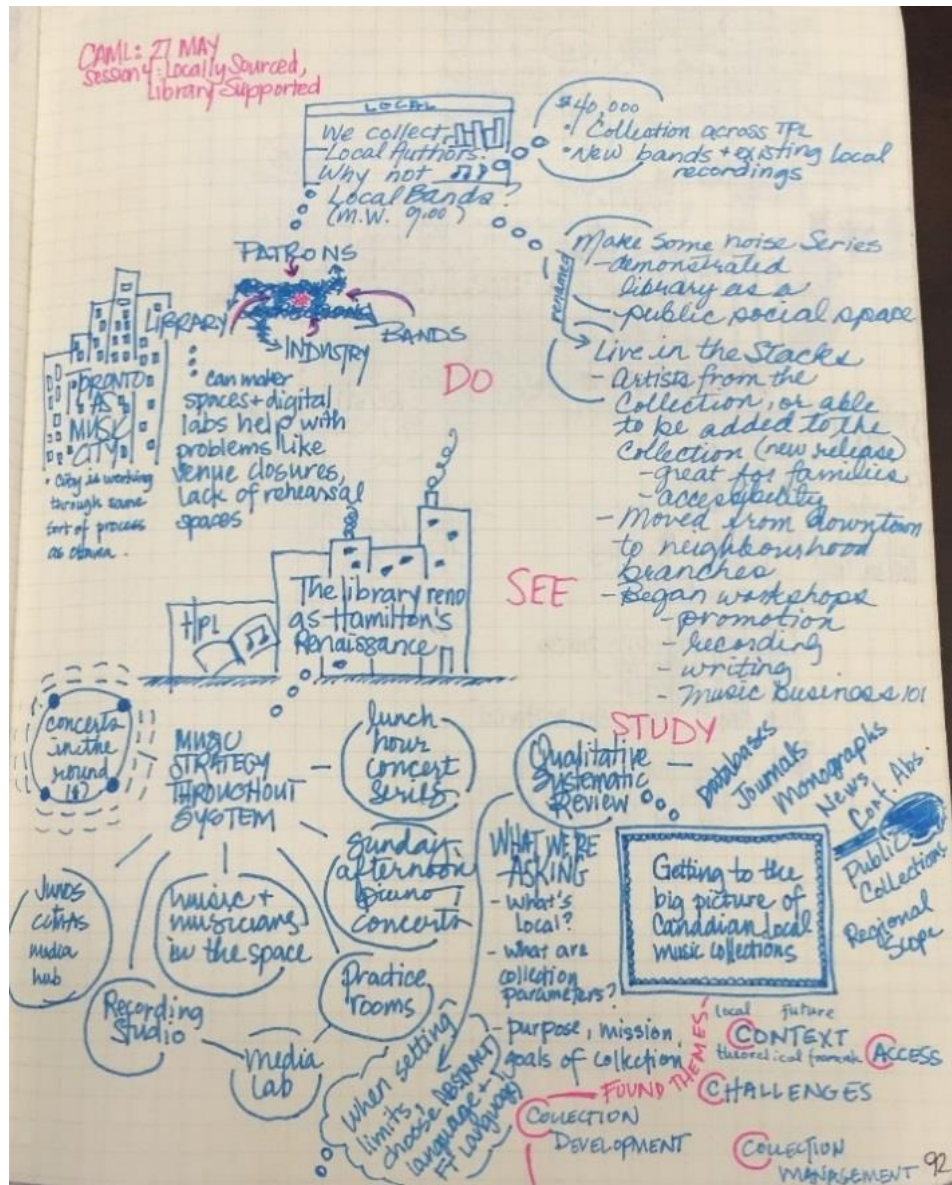 CAML: 27 MAY
Session 4: Locally Sourced,
Library Supported
LOCAL
We collect
Local Authors.
Why not
Local Bands?
(M.W. 9:00)
$40,000
• Collection across TPL
• New bands + existing local
recordings
renamed
Make Some noise Series
- demonstrated
library as a
public social space
Live in the Stacks
- Artists from the
Collection, or able
to be added to the
Collection (new release)
- great for families
- accessibility
- Moved from downtown
to neighbourhood
branches
- Began workshops
- promotion
- recording
- writing
- Music Business 101
PATRONS
LIBRARY
BANDS
INDUSTRY
TORONTO
AS
MUSIC
CITY
• City is working
through same
sort of process
as
• can maker
spaces + digital
labs help with
problems like
venue closures,
lack of rehearsal
spaces
DO
SEE
STUDY
HPL
The library reno
as Hamilton's
Renaissance
concerts
in the
round
MUSIC
STRATEGY
THROUGHOUT
SYSTEM
lunch
hour
concert
series
Sunday
afternoon
piano
concerts
Practice
rooms
music +
musicians
in the space
Media
Lab
Recording
Studio
Junos
CCMAs
media
hub
Qualitative
Systematic
Review
Databases
Journals
Monographs
News
Conf. Abs.
Public
Collections
Regional
Scope
Getting to the
big picture of
Canadian local
music collections
WHAT WE'RE
ASKING
- What's
local?
- what are
collection
parameters?
- purpose, mission,
goals of collection
When setting
limits,
choose ABSTRACT
language +
FT Language
FOUND THEMES
local future
CONTEXT
theoretical
ACCESS
CHALLENGES
COLLECTION
DEVELOPMENT
COLLECTION
MANAGEMENT
92